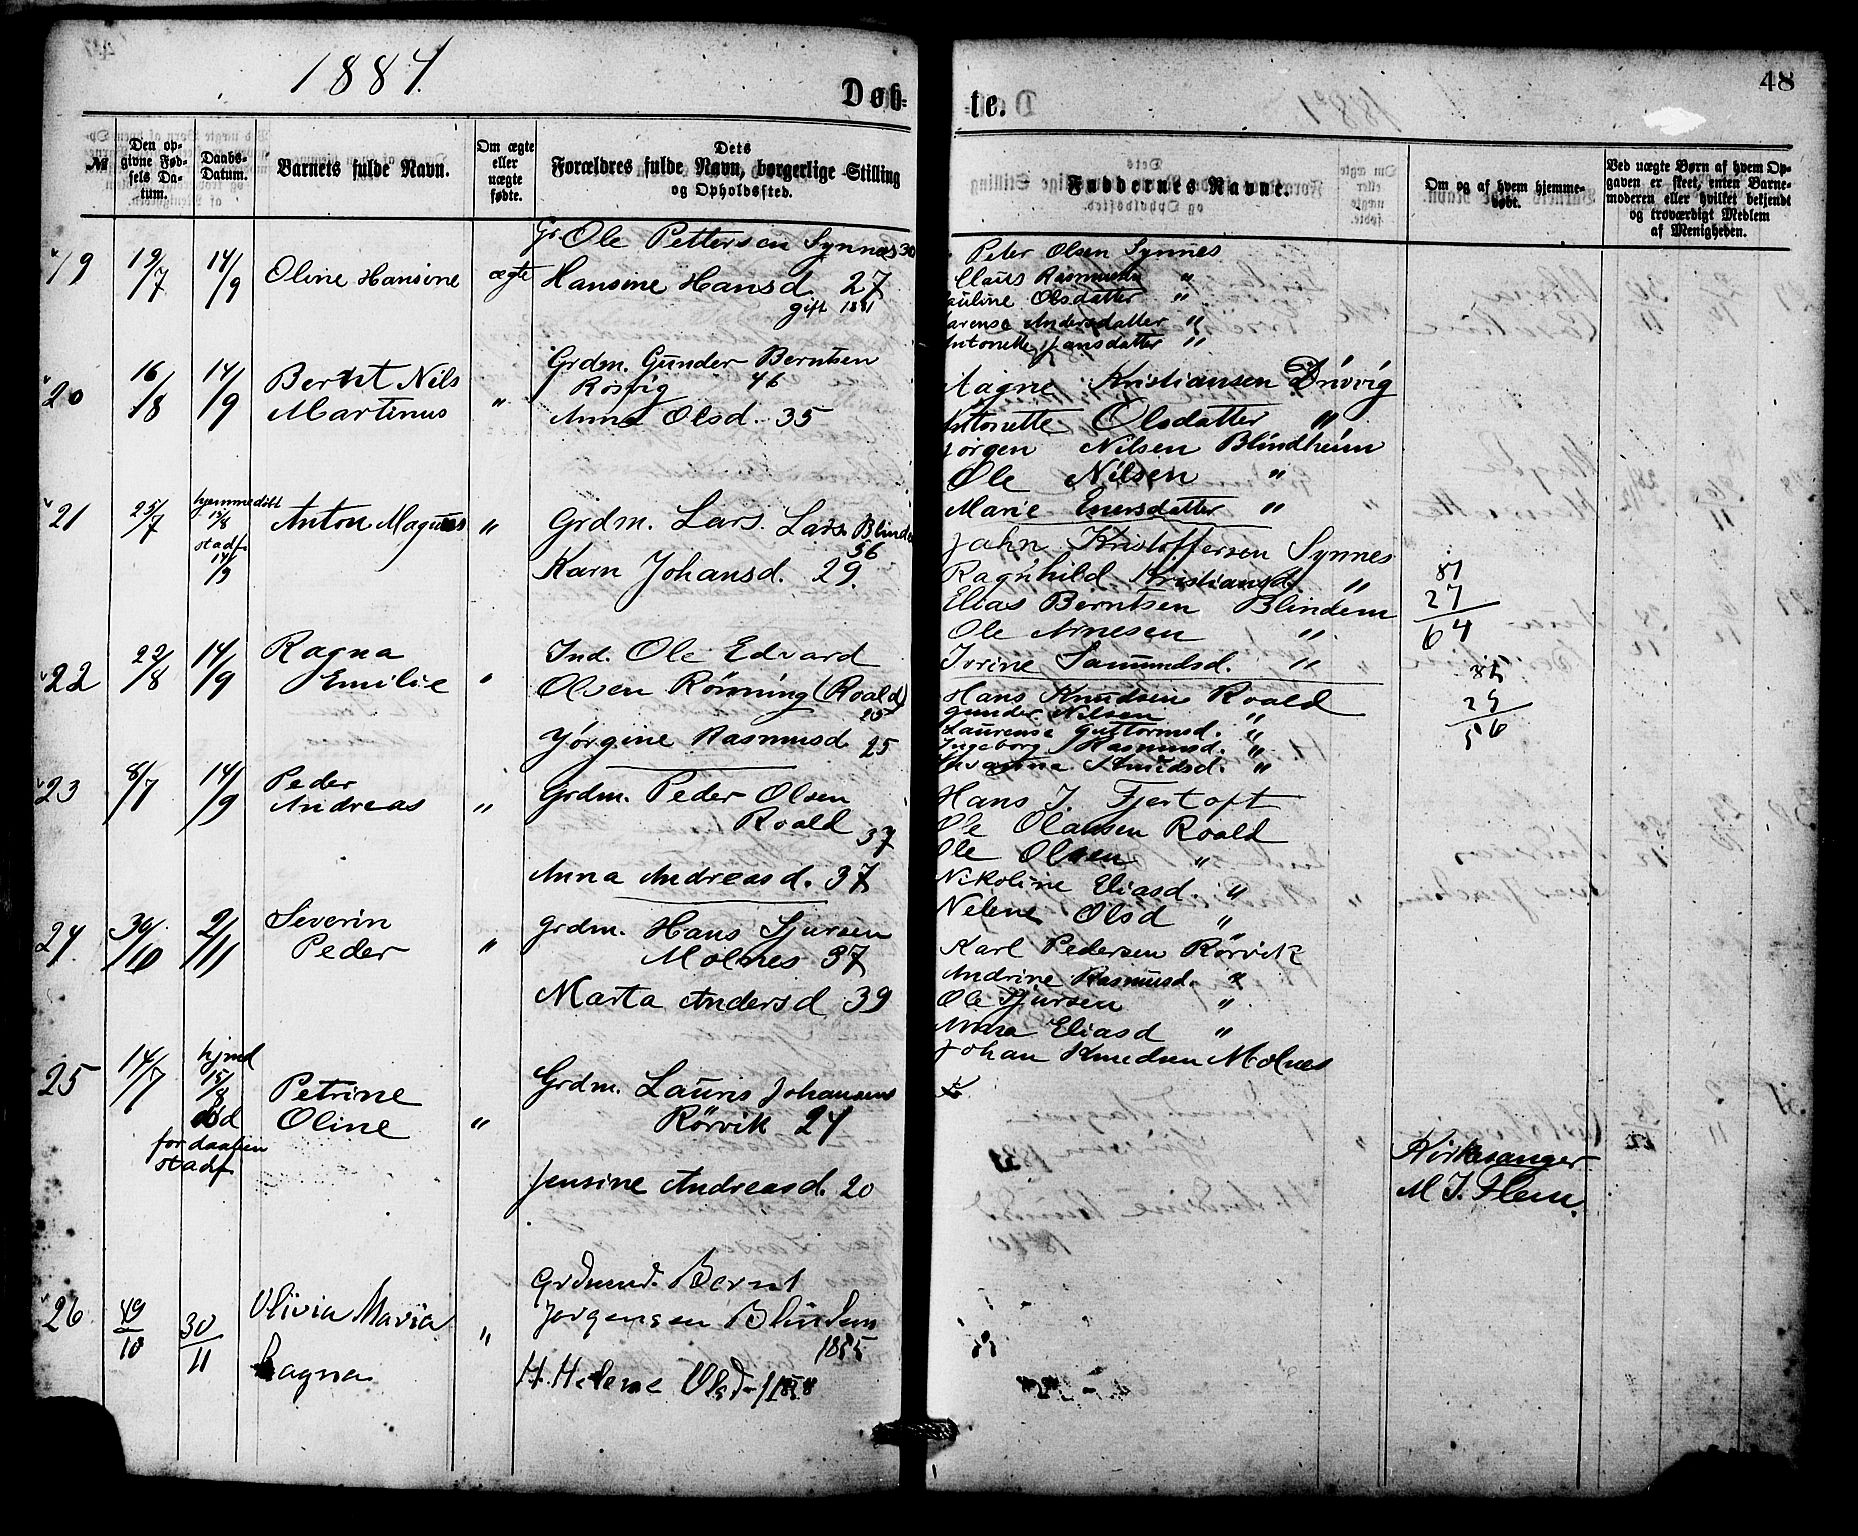 1884.
Døb-
№
Den opgivne Fødsels Datum.
Daabs-Datum.
Barnets fulde Navn.
Om ægte eller uægte fødte.
Dets Forældres fulde Navn, borgerlige Stilling og Opholdssted.
19 19/7 14/9 Oline Hansine ægte Gr Ole Pettersen Synnæs 30
Hansine Hansd. 27
gift 1881
20 16/8 14/9 Bernt Nils " Grdm. Gunder Berntsen
Martinus Rösvig 46
Anna Olsd. 35
21 25/7 hjemmedöbt 15/8 stadf. 14/9 Anton Magnus " Grdm. Lars Lars. Blinde
56
Karn Johansd. 29.
22 22/8 14/9 Ragna " Ind. Ole Edvard
Emilie Olsen Rönning (Roald)
25
Jörgine Rasmusd. 25
23 8/7 14/9 Peder " Grdm. Peder Olsen
Andreas Roald 37
Anna Andreasd. 37
24. 30/10 2/11 Severin " Grdm. Hans Sjursen
Peder Molnes 37
Marta Andersd 39
25 14/7 hjmd 15/8 död for daaben stadf Petrine " Grdm. Lauris Johansens
Oline Rörvik 24
Jensine Andreasd. 20
26 30/11 Olivia Maria " Grdmnd. Bernt
Ragna Jorgensen Blindem
1855
H. Helene Olsd. 1858
te.
48
Faddernes Navne.
Om og af hvem hjemmedøbt.
Ved uægte Børn af hvem Opgaven er skeet, enten Barnemoderen eller hvilket bekjendt og troværdigt Medlem af Menigheden.
Peter Olsen Synnes
Claus Rasmusen "
auline Olsdatter "
arense Andersdatter "
Antonette Jansdatter "
Aagne Kristiansen Drivvig
Antonette Olsdatter "
Jörgen Nilsen Blindheim
Ole Nilsen "
Marie Enersdatter "
John Kristoffersen Synnes
Ragnhild Kristiansd. "
Elias Berntsen Blindem
Ole Arnesen "
Irrine Samundsd. "
81
27
64
Hans Knudsen Roald
Gunder Nilsen "
Laurense Guttormsd. "
Ingeborg Rasmusd. "
Knudsd. "
81
25
56
Hans J. Fjertoft
Ole Olausen Roald
Ole Olsen "
Nikoline Eliasd. "
Nelene Olsd "
Karl Pedersen Rörvik
Andrine Rasmusd. "
Ole Sjursen "
Anna Eliasd "
Johan Knudsen Molnes
Kirkesanger
M J. Flem.